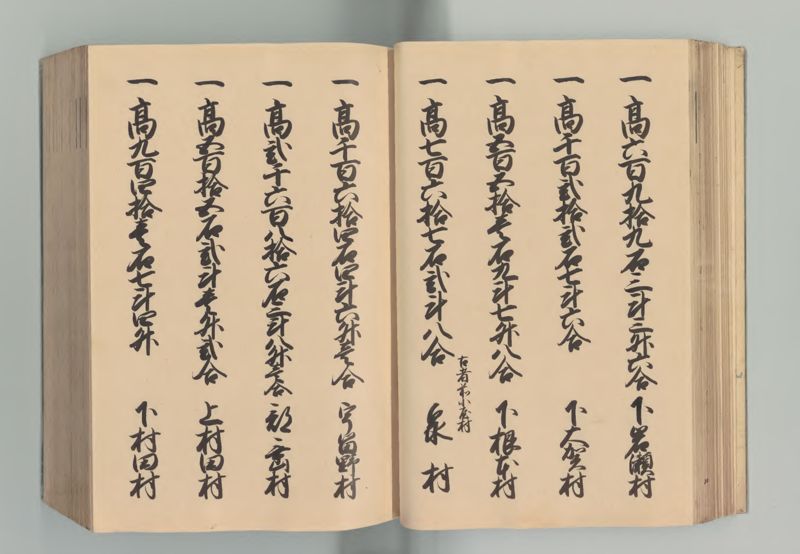 一高六百九拾九石三斗三升六合 下岩瀬村
一高千百弐拾弐石七斗六合 下大賀村
一高五百五拾壱石九斗七升八合 下根本村
古者前小屋村
一高七百六拾七石弐斗八合 泉村
一高千百六拾四石四斗六升壱合 宇留野村
一高弐千六百八拾六石三斗八升壱合 部垂村
一高五百拾五石弐斗壱升弐合 上村田村
一高九百四拾壱石七斗四升 下村田村